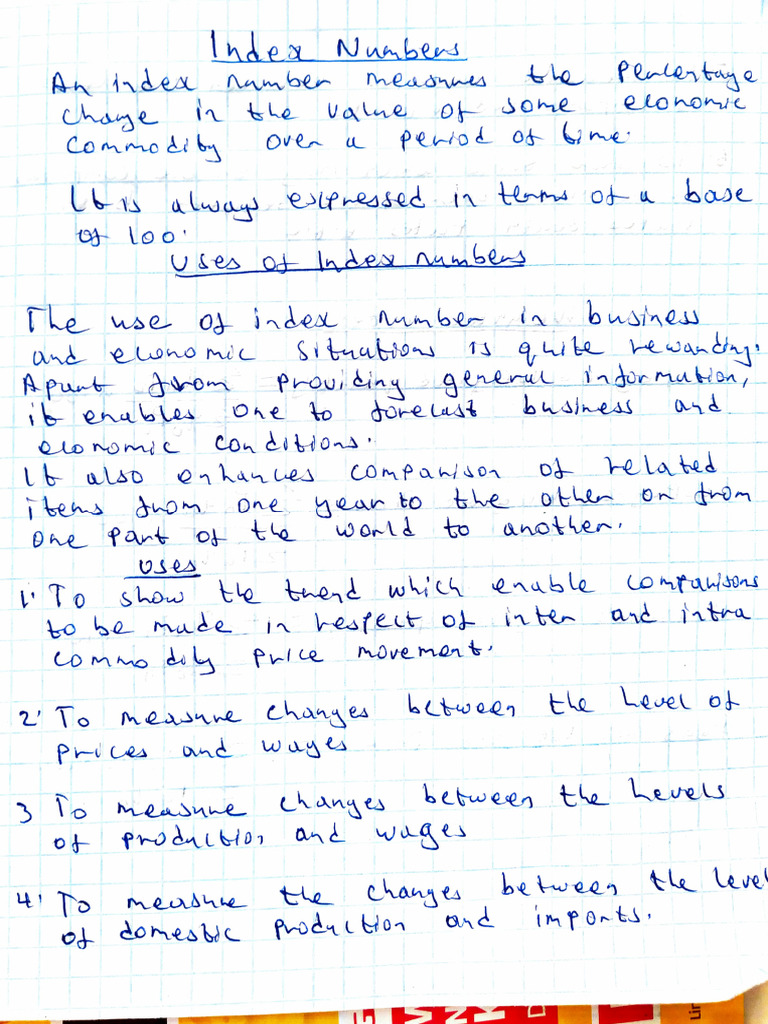 Index Numbers
An index number measures the percentage
change in the value of some economic
commodity over a period of time.
It is always expressed in terms of a base
of 100.
Uses of Index numbers
The use of index number in business
and economic situations is quite rewarding.
Apart from providing general information,
it enables one to forecast business and
economic conditions.
It also enhances comparison of related
items from one year to the other or from
one part of the world to another.
Uses
1. To show the trend which enable comparisons
to be made in respect of inter and intra
commodity price movement.
2. To measure changes between the level of
prices and wages
3 To measure changes between the levels
of production and wages
4. To measure the changes between the level
of domestic production and imports.